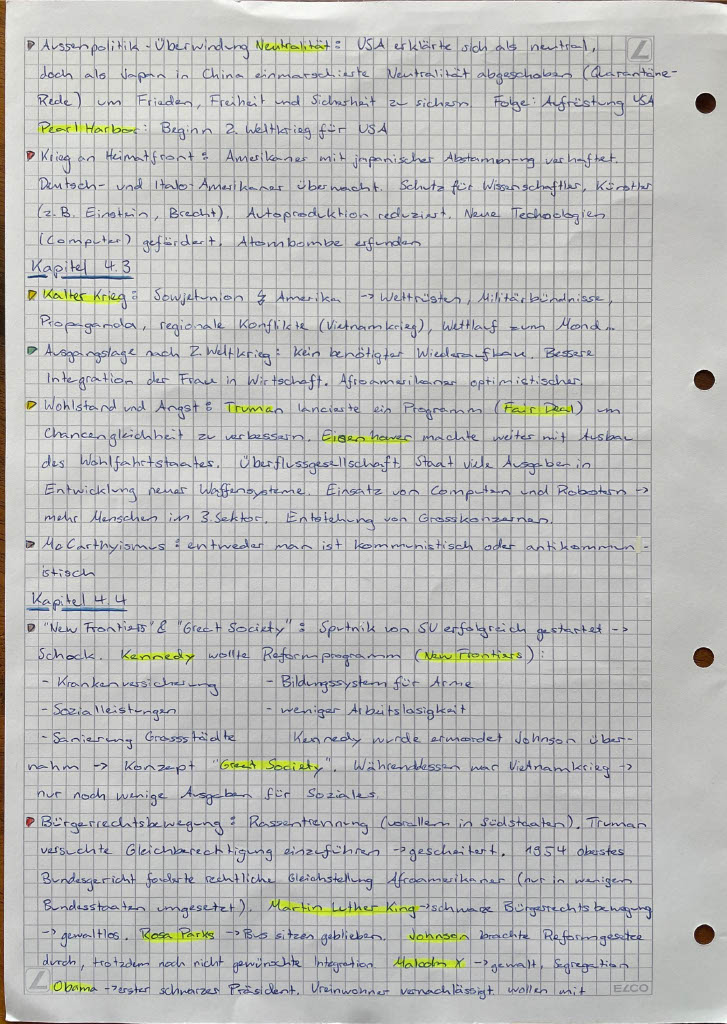 Aussenpolitik - Überwindung Neutralität: USA erklärte sich als neutral,
doch als Japan in China einmarschierte Neutralität abgeschoben (Quarantäne-
Rede) um Frieden, Freiheit und Sicherheit zu sichern. Folge: Aufrüstung USA
Pearl Harbor: Beginn 2. Weltkrieg für USA
Krieg an Heimatfront: Amerikaner mit japanischer Abstammung verhaftet.
Deutsch- und Italo-Amerikaner überwacht. Schutz für Wissenschaftler, Künstler
(z.B. Einstein, Brecht). Autoproduktion reduziert. Neue Technologien
(Computer) gefördert. Atombombe erfunden
Kapitel 4.3
Kalter Krieg: Sowjetunion ↯ Amerika -> Wettrüsten, Militärbündnisse,
Propaganda, regionale Konflikte (Vietnamkrieg), Wettlauf zum Mond...
Ausgangslage nach 2. Weltkrieg: kein benötigter Wiederaufbau. Bessere
Integration der Frau in Wirtschaft. Afroamerikaner optimistischer.
Wohlstand und Angst: Truman lancierte ein Programm (Fair Deal) um
Chancengleichheit zu verbessern. Eisenhower machte weiter mit Ausbau
des Wohlfahrtstaates. Überflussgesellschaft. Staat viele Ausgaben in
Entwicklung neuer Waffensysteme. Einsatz von Computern und Robotern ->
mehr Menschen im 3. Sektor. Entstehung von Grosskonzernen.
McCarthyismus: entweder man ist kommunistisch oder antikommun-
istisch
Kapitel 4.4
"New Frontiers" & "Great Society": Sputnik von SU erfolgreich gestartet ->
Schock. Kennedy wollte Reformprogramm (New Frontiers):
- Krankenversicherung - Bildungssystem für Arme
- Sozialleistungen - weniger Arbeitslosigkeit
- Sanierung Grossstädte Kennedy wurde ermordet Johnson über-
nahm -> Konzept "Great Society". Währenddessen war Vietnamkrieg ->
nur noch wenige Ausgaben für Soziales.
Bürgerrechtsbewegung: Rassentrennung (vorallem in Südstaaten). Truman
versuchte Gleichberechtigung einzuführen -> gescheitert. 1954 oberstes
Bundesgericht forderte rechtliche Gleichstellung Afroamerikaner (nur in wenigen
Bundesstaaten umgesetzt). Martin Luther King -> schwarze Bürgerrechtsbewegung
-> gewaltlos. Rosa Parks -> Bus sitzen geblieben. Johnson brachte Reformgesetze
durch, trotzdem noch nicht gewünschte Integration. Malcolm X -> gewalt, Segregation
Obama -> erster schwarzer Präsident. Ureinwohner vernachlässigt wollen mit
ELCO